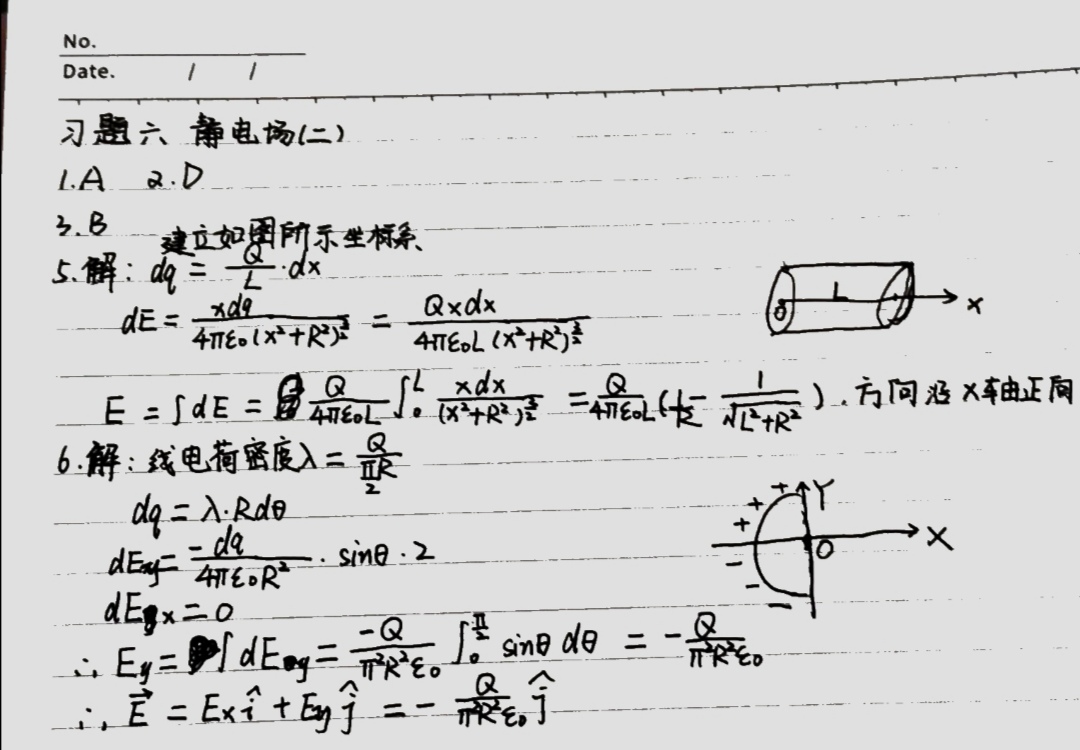 No.
Date. / /
习题六 静电场(二)
1.A 2.D
3.B
建立如图所示坐标系
5.解: dq = Q/L · dx
dE = xdq / 4πε₀(x²+R²)^(3/2) = Qxdx / 4πε₀L(x²+R²)^(3/2)
L
O
x
E = ∫dE = Q/4πε₀L ∫₀ᴸ xdx/(x²+R²)^(3/2) = Q/4πε₀L (1/R - 1/√(L²+R²)). 方向沿x轴正向
6.解: 线电荷密度λ = Q / (π/2)R
dq = λ·Rdθ
dEy = -dq/4πε₀R² · sinθ · 2
dEx = 0
+ + +
- - -
Y
O
X
∴ Ey = ∫dEy = -Q/π²R²ε₀ ∫₀^(π/2) sinθ dθ = - Q/π²R²ε₀
∴ E⃗ = Ex î + Ey ĵ = - Q/π²R²ε₀ ĵ